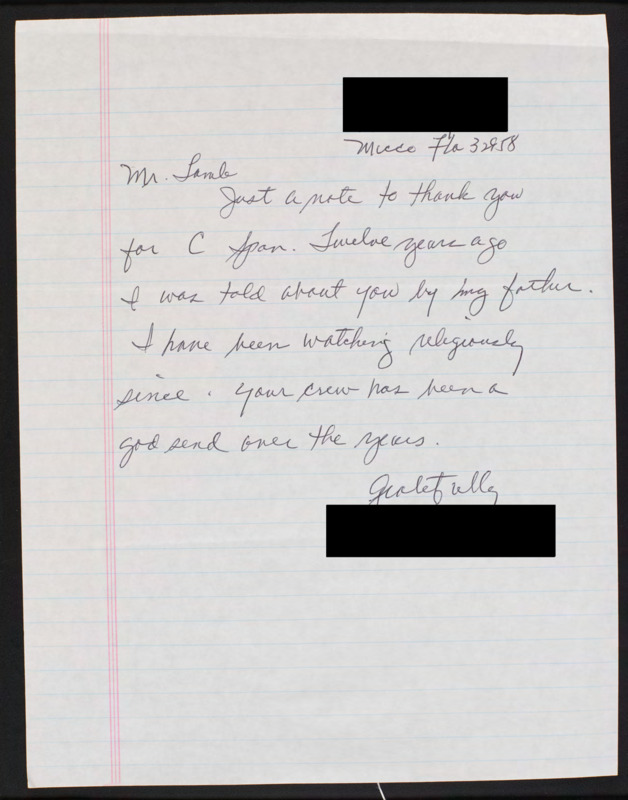 Micco Fla 32958
Mr. Lamb
Just a note to thank you
for C Span. Twelve years ago
I was told about you by my father.
I have been watching religiously
since. Your crew has been a
god send over the years.